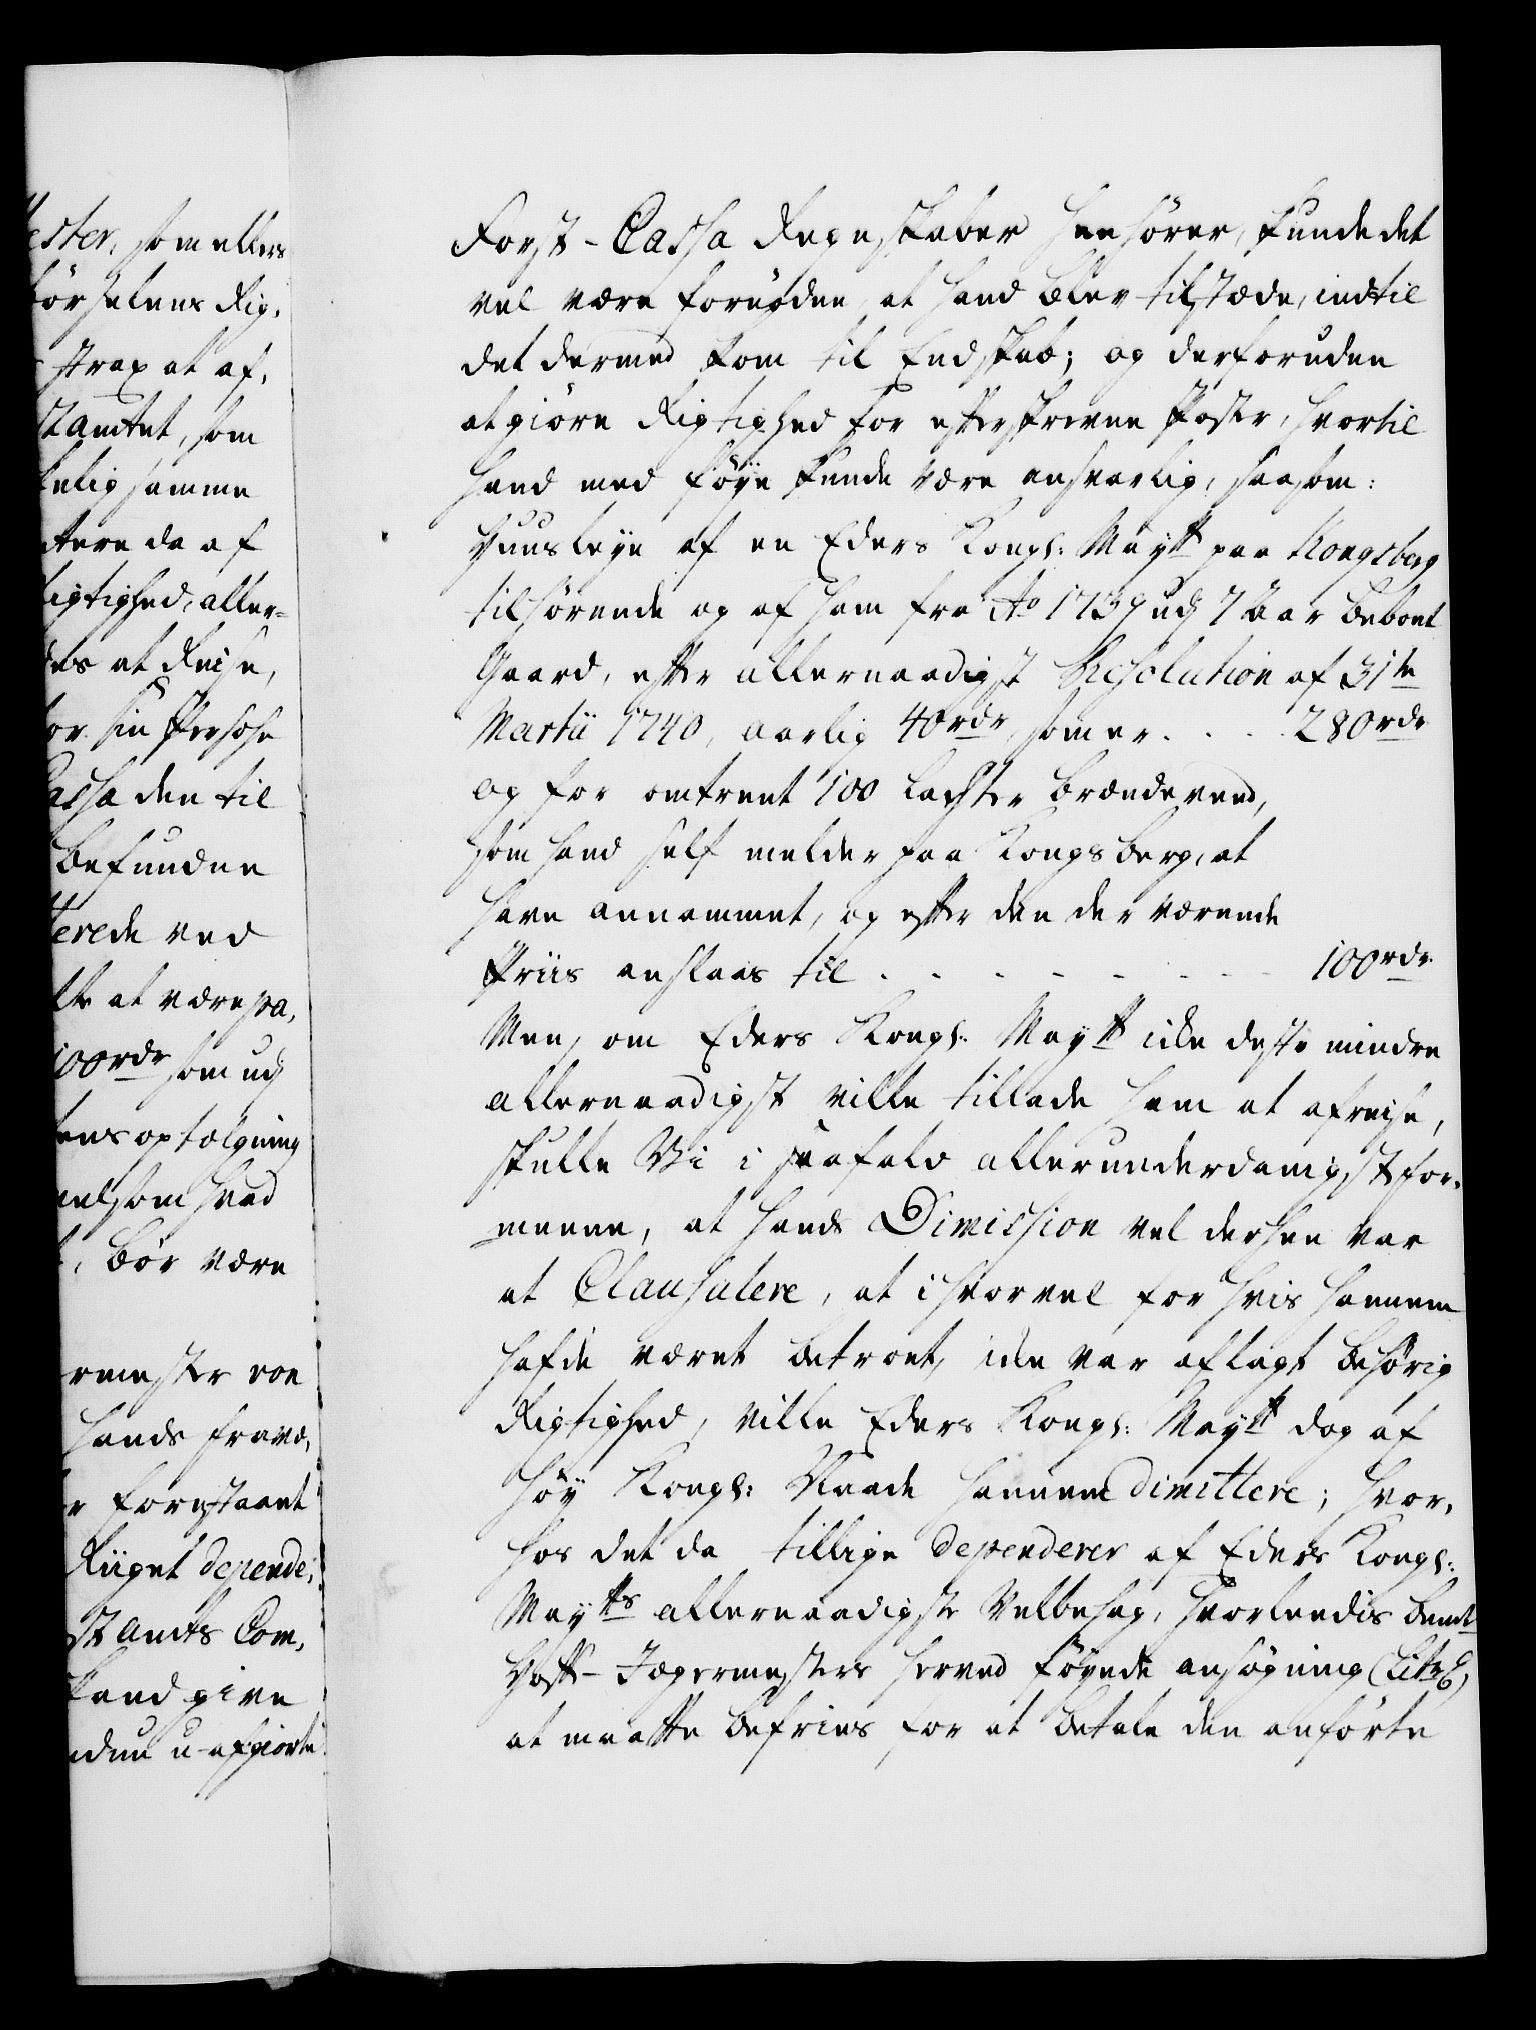 ester, som ellers
börselens Rig-
strax at af-
stamtet, som
kelig samme
ntere da af
Rigtighed, aller-
des at Reise,
for sin Persohn
Cassa den til
befunden
terede ved
lte at være pa-
100 rdr som udj
kens optælgning
velsom hvad
, bör være
rmester von
hands fravæ-
r foreftaaet
Riiget depende-
stamts Com-
stand give
nden u-afgiorte
Forst-Cassa Regnskaber henhörer, kunde det
vel være fornöden, at hand blev tilstæde, indtil
det dermed kom til Endskab; og derforuden
at giöre Rigtighed for efterskrevne Poster, hvortil
hand med föye kunde være ansvarlig, saasom:
Huusleye af en Eders Kongl: Maytt paa Kongsberg
tilhörende og af ham fra Ao 1739 udj 7 Aar beboet
Gaard, efter allernaadigst Resolution af 31te
Martii 1740, aarlig 40 rdr, som er . . . . 280 rdr
og for omtrent 100 Lachter brændeveed,
som hand self melder paa Kongsberg, at
have annammet, og efter den der værende
Priis anslaas til . . . . . . . 100 rdr.
Men, om Eders Kongl. Maytt icke desto mindre
allernaadigst ville tillade ham at afreise,
skulle Vi i saafald allerunderdanigst for-
meene, at hands Dimission vel derhen var
at Clausulere, at ihvorvel for hvis hannem
hafde været betroet, icke var aflagt behörig
Rigtighed, ville Eders Kongl: Maytt dog af
höy Kongl: Naade hannem dimittere; hvor-
hos det da tillige dependerer af Eders Kongl:
Maytts allernaadigste Velbehag, hvorledis bemte
Hoff-Jægermesters herved föyede ansögning (Litr. E)
at maatte befries for at betale den anförte